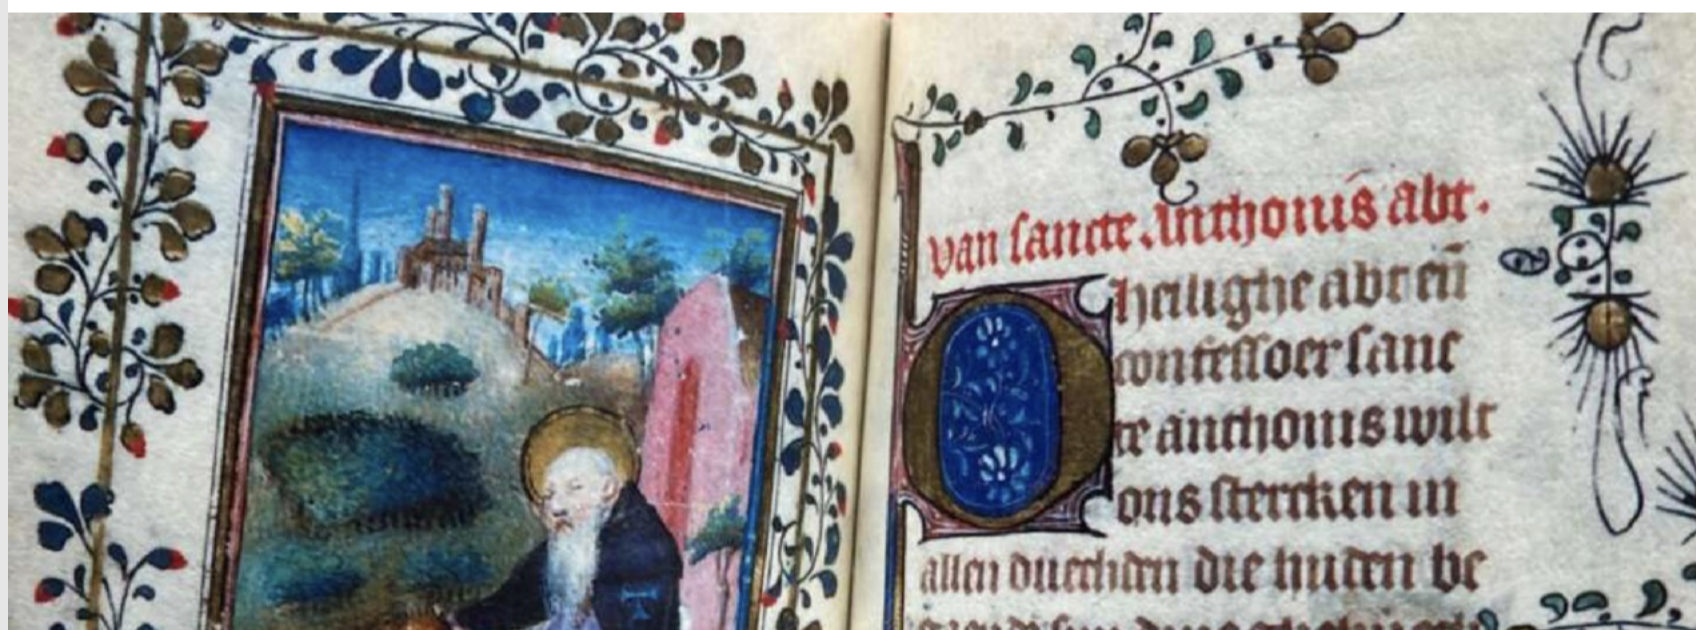 van sancte Anthonis abt.
O heilighe abt en̄
confessoer sanc
te anthonis wilt
ons stercken in
allen duechden die huden be